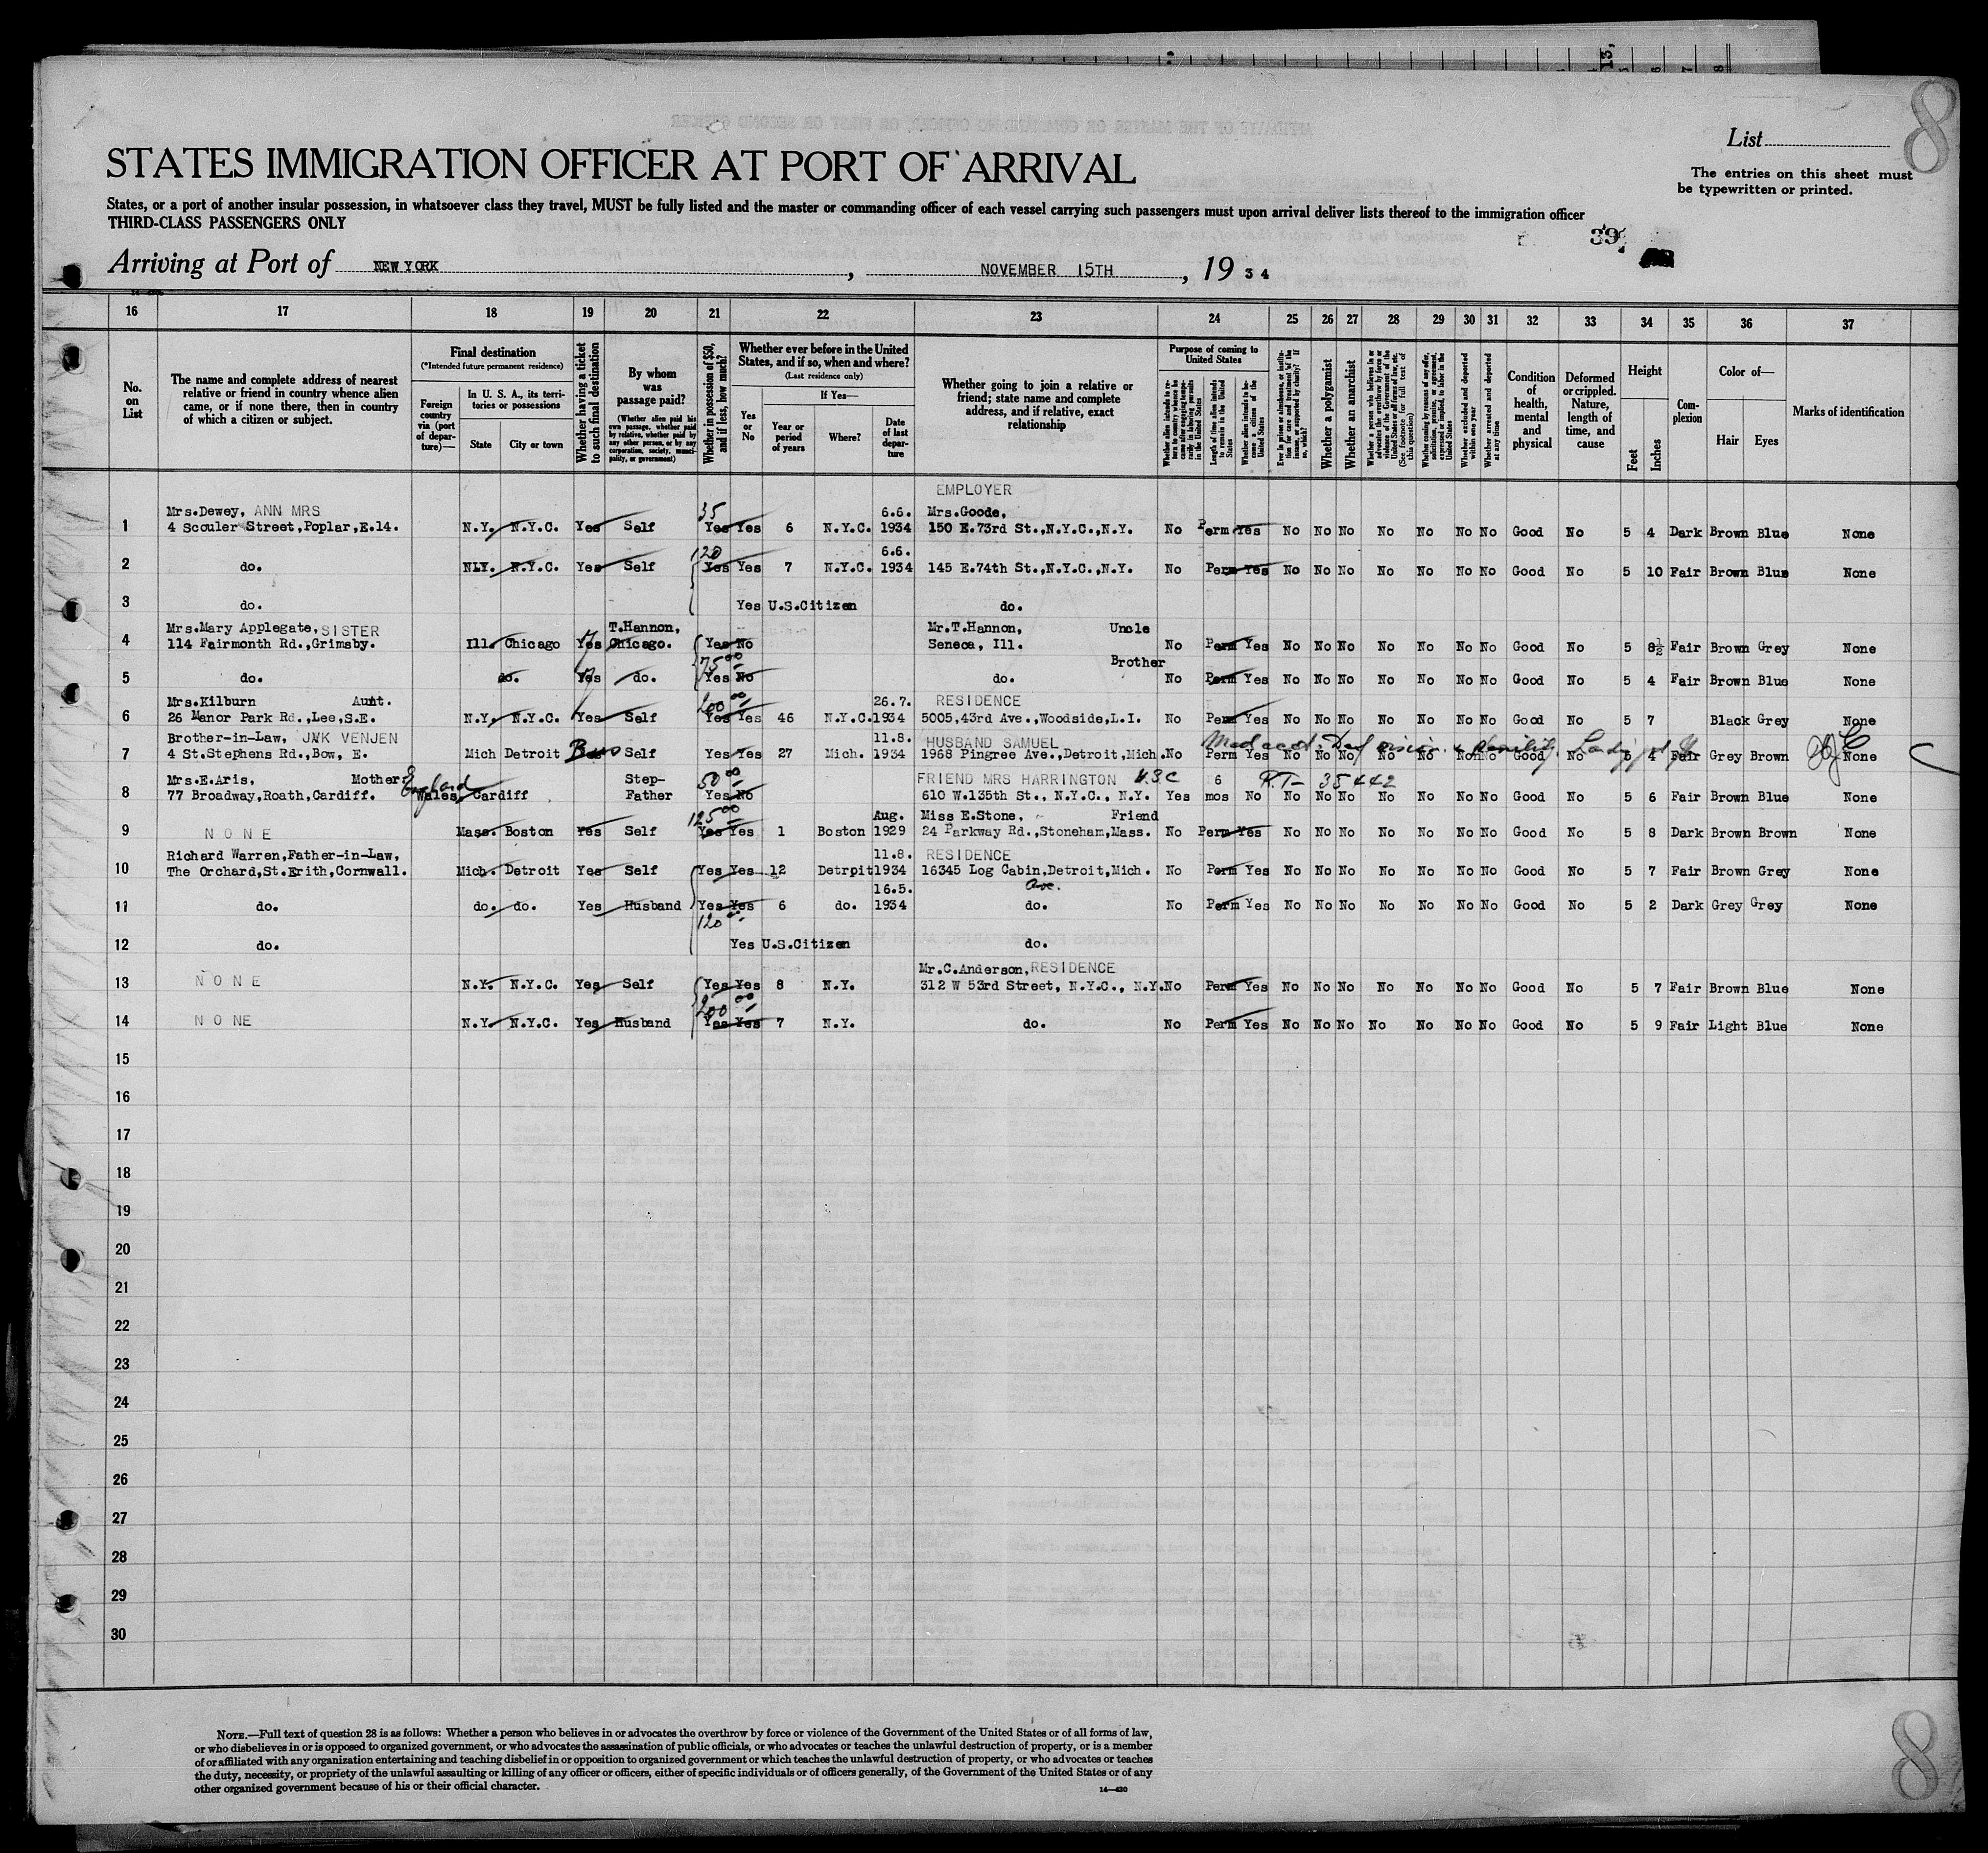 8
List
The entries on this sheet must
be typewritten or printed.
STATES IMMIGRATION OFFICER AT PORT OF ARRIVAL
States, or a port of another insular possession, in whatsoever class they travel, MUST be fully listed and the master or commanding officer of each vessel carrying such passengers must upon arrival deliver lists thereof to the immigration officer
THIRD-CLASS PASSENGERS ONLY
39
Arriving at Port of NEW YORK, NOVEMBER 15TH, 19 34
16 17 18 19 20 21 22 23 24 25 26 27 28 29 30 31 32 33 34 35 36 37
No. on List
The name and complete address of nearest relative or friend in country whence alien came, or if none there, then in country of which a citizen or subject.
Final destination
(*Intended future permanent residence)
Foreign country via (port of departure)—
In U. S. A., its territories or possessions
State
City or town
Whether having a ticket to such final destination
By whom was passage paid?
(Whether alien paid his own passage, whether paid by relative, whether paid by any other person, or by any corporation, society, municipality, or government)
Whether in possession of $50, and if less, how much?
Whether ever before in the United States, and if so, when and where?
(Last residence only)
Yes or No
If Yes—
Year or period of years
Where?
Date of last departure
Whether going to join a relative or friend; state name and complete address, and if relative, exact relationship
Purpose of coming to United States
Length of time alien intends to remain in the United States
Whether alien intends to become a citizen of the United States
Whether a polygamist
Whether an anarchist
Whether excluded and deported within one year
Whether arrested and deported at any time
Condition of health, mental and physical
Deformed or crippled. Nature, length of time, and cause
Height
Feet
Inches
Complexion
Color of—
Hair
Eyes
Marks of identification
EMPLOYER
Mrs.Dewey, ANN MRS 35 6.6. Mrs.Goode,
1 4 Scouler Street,Poplar,E.14. N.Y. N.Y.C. Yes Self Yes Yes 6 N.Y.C. 1934 150 E.73rd St.,N.Y.C.,N.Y. No Perm Yes No No No No No No No Good No 5 4 Dark Brown Blue None
120 6.6.
2 do. N.Y. N.Y.C. Yes Self Yes Yes 7 N.Y.C. 1934 145 E.74th St.,N.Y.C.,N.Y. No Perm Yes No No No No No No No Good No 5 10 Fair Brown Blue None
3 do. Yes U.S.Citizen do.
Mrs.Mary Applegate, SISTER T.Hannon, Mr.T.Hannon, Uncle
4 114 Fairmonth Rd.,Grimsby. Ill. Chicago Yes Chicago. Yes No Seneca, Ill. No Perm Yes No No No No No No No Good No 5 8½ Fair Brown Grey None
75 00 Brother
5 do. do. Yes do. Yes No do. No Perm Yes No No No No No No No Good No 5 4 Fair Brown Blue None
Mrs.Kilburn Aunt. 200 00 26.7. RESIDENCE
6 26 Manor Park Rd.,Lee,S.E. N.Y. N.Y.C. Yes Self Yes Yes 46 N.Y.C. 1934 5005,43rd Ave.,Woodside,L.I. No Perm Yes No No No No No No No Good No 5 7 Black Grey None
Brother-in-Law, 11.8. HUSBAND SAMUEL
7 4 St.Stephens Rd.,Bow, E. Mich Detroit Self Yes Yes 27 Mich. 1934 1968 Pingree Ave.,Detroit,Mich. No Perm Yes No No No No No No No Good No 5 4 Fair Grey Brown None
Mrs.E.Aris, Mother England Step- 50 00 FRIEND MRS HARRINGTON USC 6 R.T- 35442
8 77 Broadway,Roath,Cardiff. Wales, Cardiff Father Yes No 610 W.135th St., N.Y.C., N.Y. Yes mos No No No No No No No No Good No 5 6 Fair Brown Blue None
125 00 Aug. Miss E.Stone, Friend
9 NONE Mass. Boston Yes Self Yes Yes 1 Boston 1929 24 Parkway Rd.,Stoneham,Mass. No Perm Yes No No No No No No No Good No 5 8 Dark Brown Brown None
Richard Warren,Father-in-Law, 11.8. RESIDENCE
10 The Orchard,St.Erith,Cornwall. Mich. Detroit Yes Self Yes Yes 12 Detrpit 1934 16345 Log Cabin,Detroit,Mich. No Perm Yes No No No No No No No Good No 5 7 Fair Brown Grey None
16.5. Ave.
11 do. do. do. Yes Husband Yes Yes 6 do. 1934 do. No Perm Yes No No No No No No No Good No 5 2 Dark Grey Grey None
120
12 do. Yes U.S.Citizen do.
Mr.C.Anderson, RESIDENCE
13 NONE N.Y. N.Y.C. Yes Self Yes Yes 8 N.Y. 312 W 53rd Street, N.Y.C., N.Y. No Perm Yes No No No No No No No Good No 5 7 Fair Brown Blue None
200 00
14 NONE N.Y. N.Y.C. Yes Husband Yes Yes 7 N.Y. do. No Perm Yes No No No No No No No Good No 5 9 Fair Light Blue None
15
16
17
18
19
20
21
22
23
24
25
26
27
28
29
30
NOTE.—Full text of question 28 is as follows: Whether a person who believes in or advocates the overthrow by force or violence of the Government of the United States or of all forms of law,
or who disbelieves in or is opposed to organized government, or who advocates the assassination of public officials, or who advocates or teaches the unlawful destruction of property, or is a member
of or affiliated with any organization entertaining and teaching disbelief in or opposition to organized government or which teaches the unlawful destruction of property, or who advocates or teaches
the duty, necessity, or propriety of the unlawful assaulting or killing of any officer or officers, either of specific individuals or of officers generally, of the Government of the United States or of any
other organized government because of his or their official character.
14—430
8